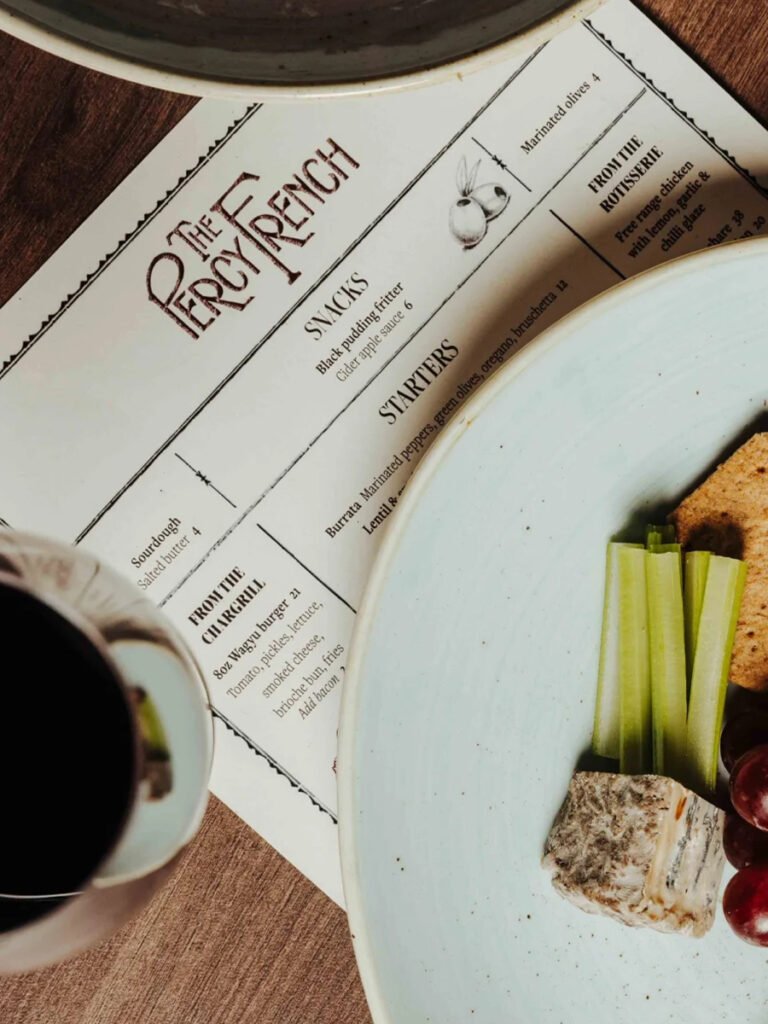 THE
PERCY FRENCH
SNACKS
Black pudding fritter
Cider apple sauce 6
Marinated olives 4
Sourdough
Salted butter 4
STARTERS
Burrata Marinated peppers, green olives, oregano, bruschetta 12
Lentil &
FROM THE
CHARGRILL
8oz Wagyu burger 21
Tomato, pickles, lettuce,
smoked cheese,
brioche bun, fries
Add bacon
FROM THE
ROTISSERIE
Free range chicken
with lemon, garlic &
chilli glaze
share 38
20